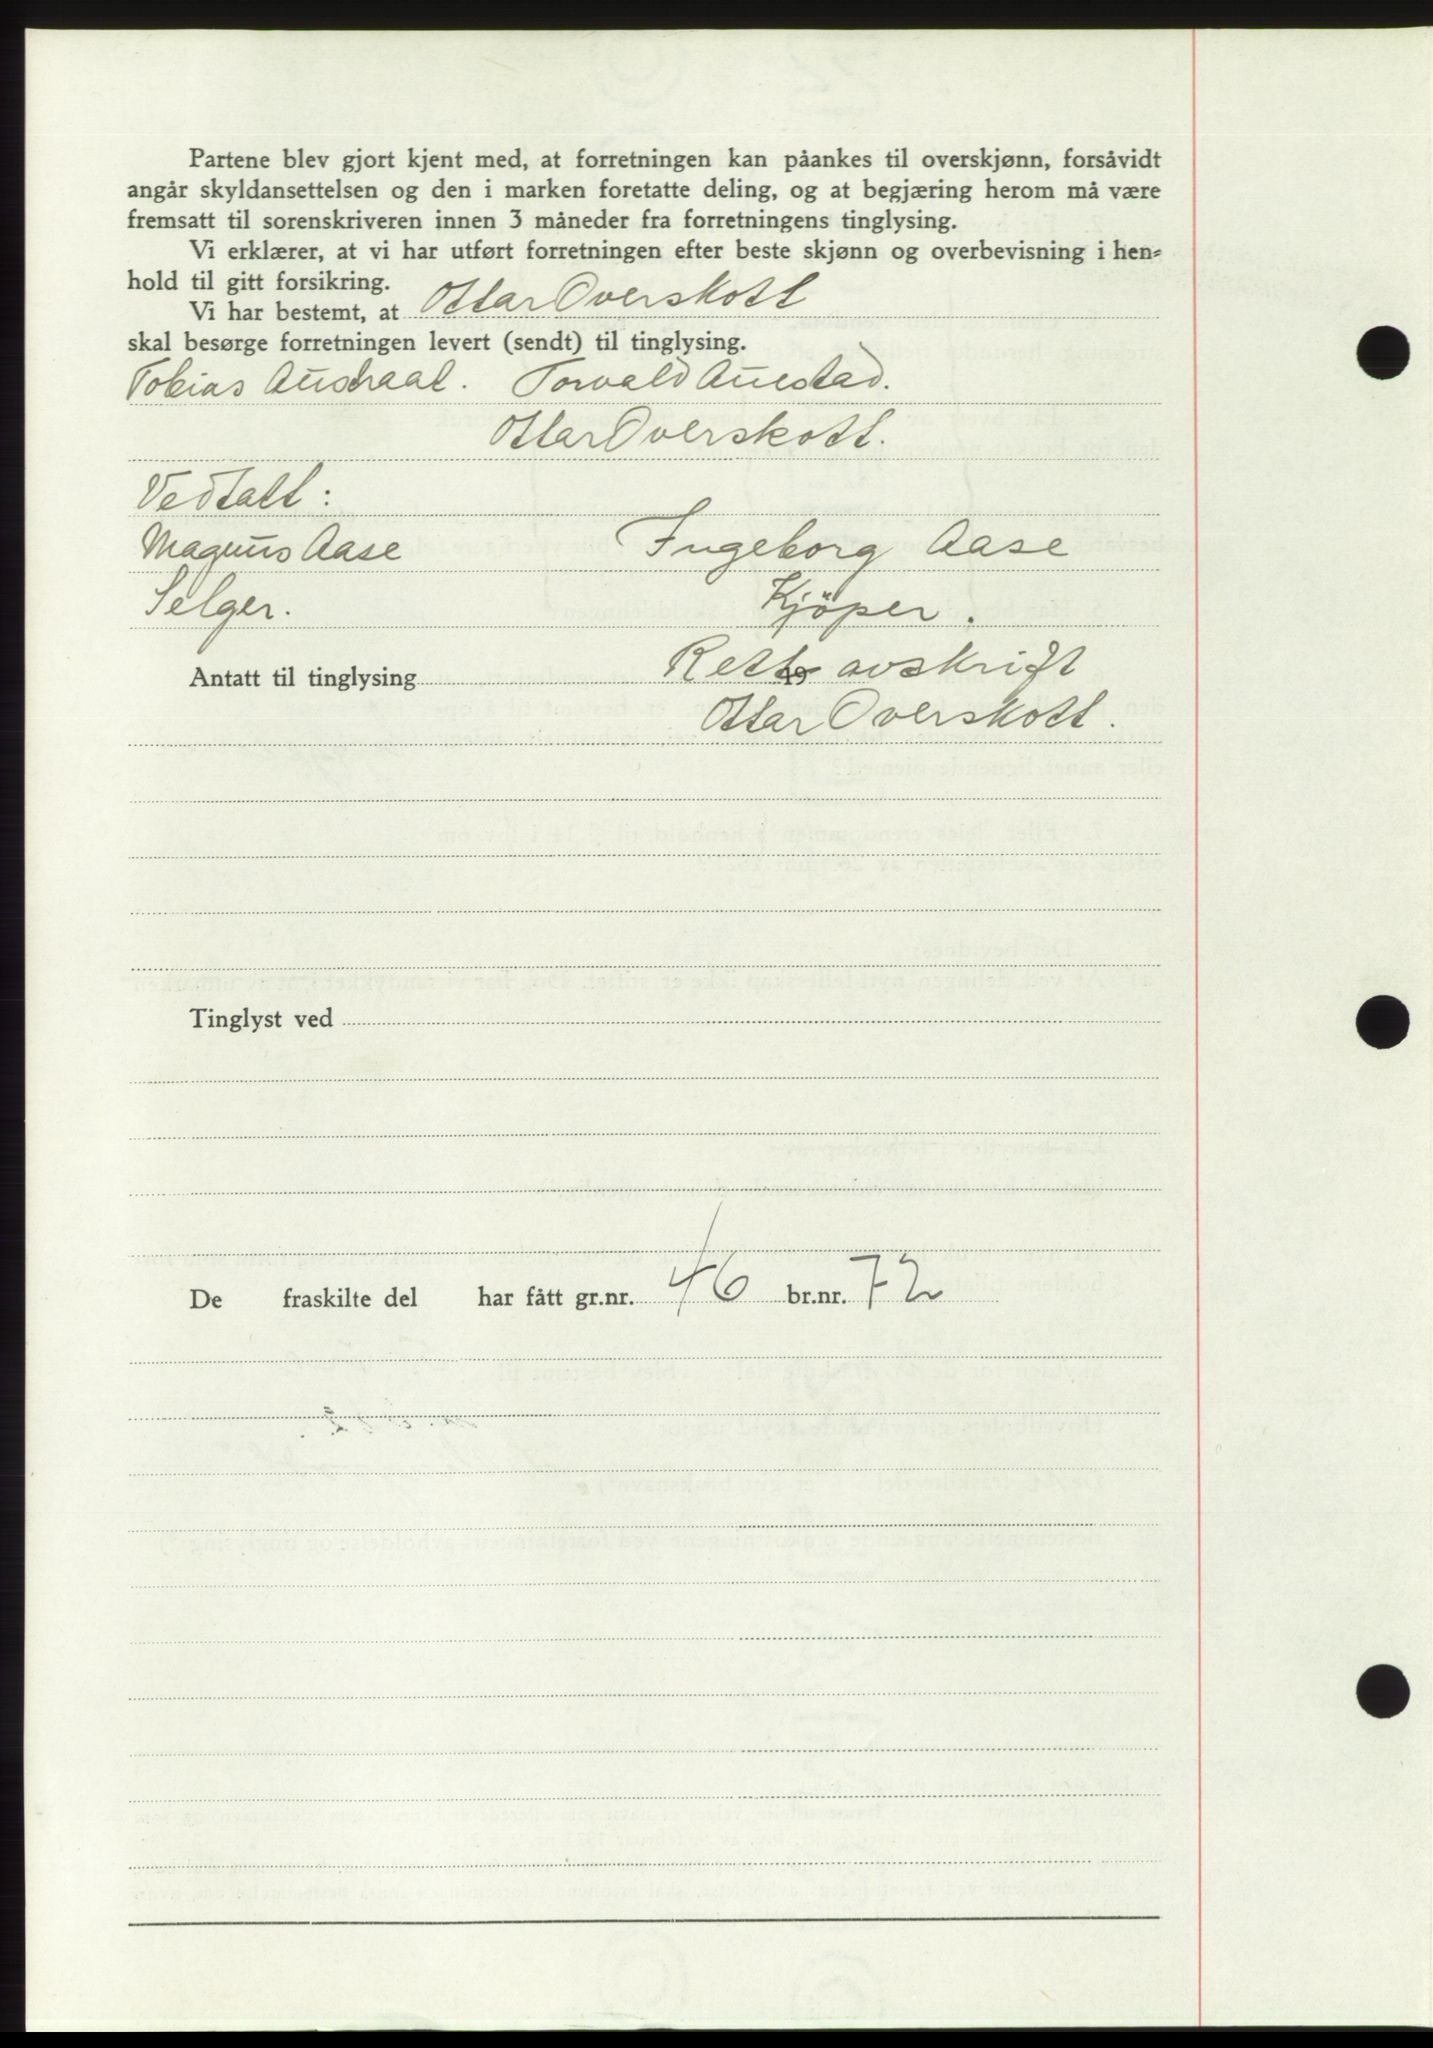 Partene blev gjort kjent med, at forretningen kan påankes til overskjønn, forsåvidt
angår skyldansettelsen og den i marken foretatte deling, og at begjæring herom må være
fremsatt til sorenskriveren innen 3 måneder fra forretningens tinglysing.
Vi erklærer, at vi har utført forretningen efter beste skjønn og overbevisning i hen-
hold til gitt forsikring.
Vi har bestemt, at Ottar Overskott
skal besørge forretningen levert (sendt) til tinglysing.
Tobias Austraat. Torvald Auestad.
Ottar Overskott.
Vedtatt:
Magnus Aase Ingeborg Aase
Selger. Kjöper.
Antatt til tinglysing 19 Rett avskrift
Ottar Overskott.
Tinglyst ved
De fraskilte del har fått gr.nr. 46 br.nr. 72